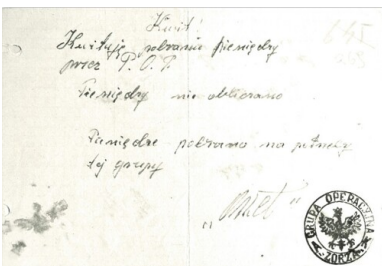 Kwit!
Kwituję pobranie pieniędzy
przez P. O. P.
Pieniędzy nie obliczano
Pieniądze pobrano na potrzeby
tej grupy
GRUPA OPERACYJNA
"ZORZA"